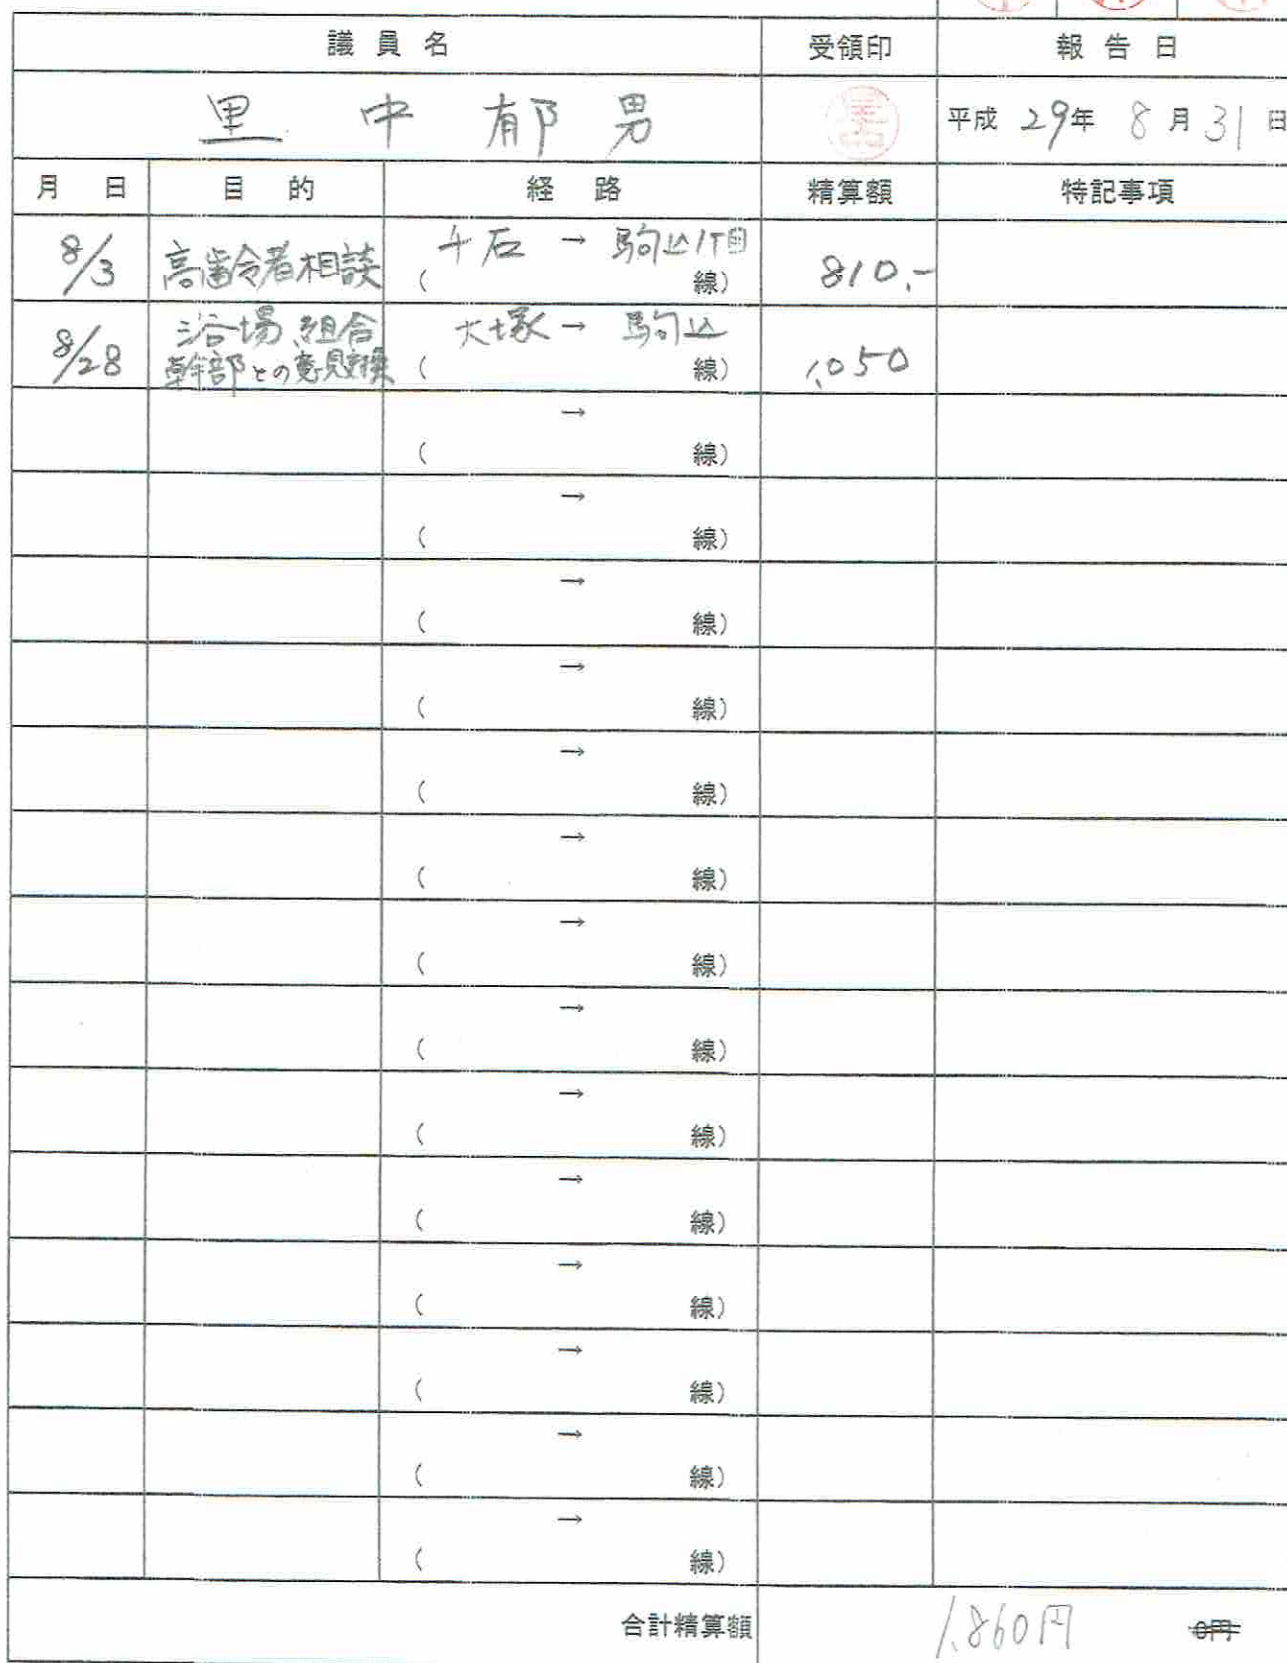 議員名 受領印 報告日
里中郁男 平成 29年 8月 31日
月日 目的 経路 精算額 特記事項
8/3 高齢者相談 千石 → 駒込1丁目 ( 線) 810.-
8/28 浴場組合 大塚 → 駒込
幹部との意見交換 ( 線) 1,050
→
( 線)
→
( 線)
→
( 線)
→
( 線)
→
( 線)
→
( 線)
→
( 線)
→
( 線)
→
( 線)
→
( 線)
→
( 線)
→
( 線)
→
( 線)
→
( 線)
合計精算額 1,860円 0円